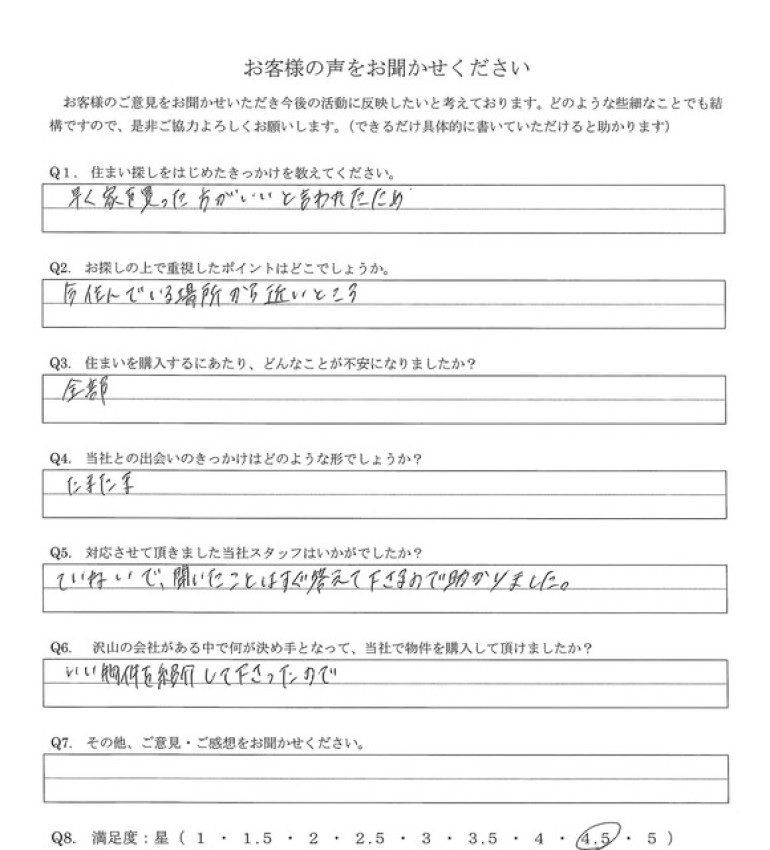 お客様の声をお聞かせください
お客様のご意見をお聞かせいただき今後の活動に反映したいと考えております。どのような些細なことでも結
構ですので、是非ご協力よろしくお願いします。（できるだけ具体的に書いていただけると助かります）
Q1. 住まい探しをはじめたきっかけを教えてください。
早く家を買った方がいいと言われたため
Q2. お探しの上で重視したポイントはどこでしょうか。
今住んでいる場所から近いところ
Q3. 住まいを購入するにあたり、どんなことが不安になりましたか？
全部
Q4. 当社との出会いのきっかけはどのような形でしょうか？
たまたま
Q5. 対応させて頂きました当社スタッフはいかがでしたか？
ていねいで、聞いたことはすぐ答えて下さるので助かりました。
Q6. 沢山の会社がある中で何が決め手となって、当社で物件を購入して頂けましたか？
いい物件を紹介して下さったので
Q7. その他、ご意見・ご感想をお聞かせください。
Q8. 満足度：星（ 1 ・ 1.5 ・ 2 ・ 2.5 ・ 3 ・ 3.5 ・ 4 ・ 4.5 ・ 5 ）